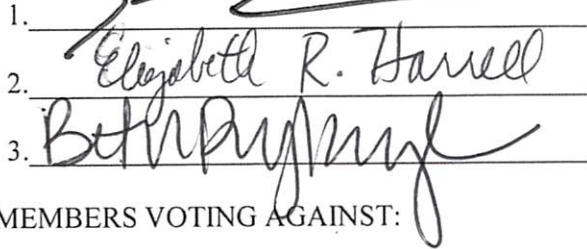 1.
2. Elizabeth R. Harrell
3. Beth
MEMBERS VOTING AGAINST: